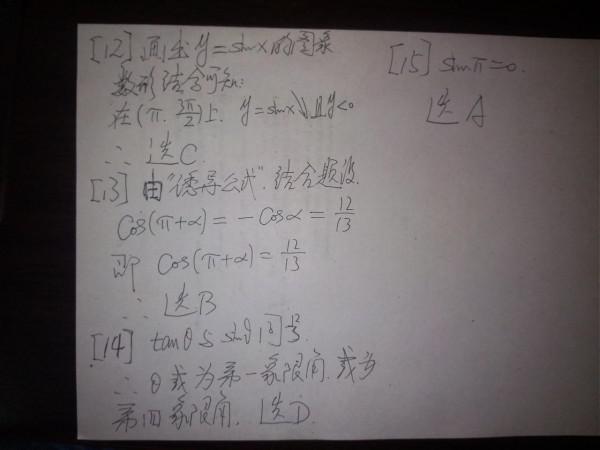 [12] 画出y=sinx的图象
数形结合可知:
在(π, 3π/2)上, y=sinx↘且y<0
∴ 选C.
[13] 由"诱导公式", 结合题设.
Cos(π+α)=-Cosα=12/13
即 Cos(π+α)=12/13
∴ 选B
[14] tanθ与sinθ同号.
∴ θ或为第一象限角, 或为
第四象限角. 选D.
[15] sinπ=0.
选A